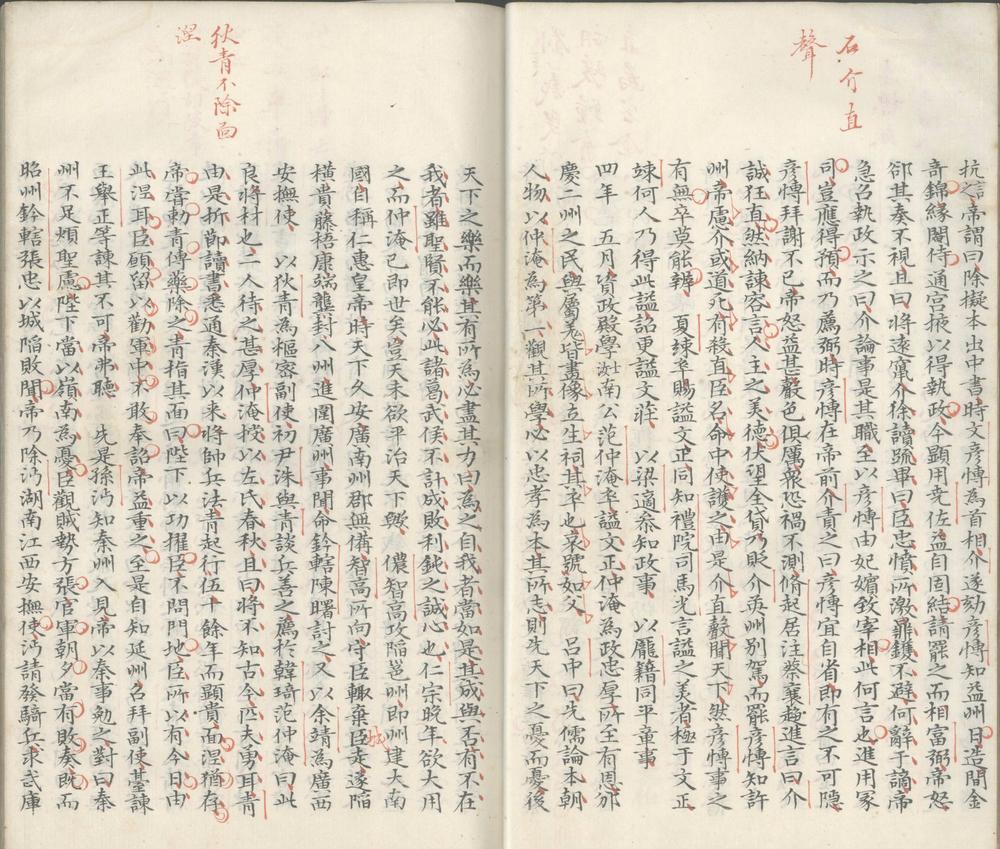 石介直
聲
抗言帝謂曰除擬本出中書時文彥愽為首相介遂劾彥愽知益州日造間金
奇錦緣閹侍通宫掖以得執政今顯用尭佐益自固結請罷之而相富弼帝怒
郤其奏不視且曰將遠竄介徐讀疏畢曰臣忠憤所激鼎鑊不避何辭于謫帝
急名執政示之曰介論事是其職至以彥愽由妃嬪致宰相此何言也進用冢
司豈應得預而乃薦弼時彥愽在帝前介責之曰彥愽宜自省即有之不可隱
彥愽拜謝不已帝怒益甚嚴色俱厲衆恐禍不測脩起居注蔡襄趍進言曰介
誠狂直然納諫容言人主之美德伏望全貸乃貶介英州别駕而罷彥愽知許
州帝慮介或道死有殺直臣名命中使護之由是介直聲聞天下然彥愽事之
有無卒莫能辨 夏竦卒賜謚文正同知禮院司馬光言謚之美者極于文正
竦何人乃得此謚詔更謚文莊 以梁適叅知政事 以龐籍同平章事
四年 五月資政殿學士汝南公范仲淹卒謚文正仲淹為政忠厚所至有恩邠
慶二州之民與屬羌皆畫像立生祠其卒也哀號如父 吕中曰先儒論本朝
人物以仲淹為第一觀其所學必以忠孝為本其所志則先天下之憂而憂後
狄青不除面
湼
天下之樂而樂其有所為必盡其力曰為之自我者當如是其成與否有不在
我者雖聖賢不能必此諸葛武侯不計成敗利鈍之誠心也仁宗晚年欲大用
之而仲淹已即世矣豈天未欲平治天下歟 儂智高攻陷邕州即州建大南
國自稱仁惠皇帝時天下久安廣南州郡無備智高所向守臣輙棄城走遂陷
橫貴藤梧康端龔封八州進圍廣州事聞命鈐轄陳曙討之又以余靖為廣西
安撫使 以狄青為樞密副使初尹洙與青談兵善之薦於韓琦范仲淹曰此
良將材也二人待之甚厚仲淹授以左氏春秋且曰將不知古今匹夫勇耳青
由是折節讀書悉通秦漢以来將帥兵法青起行伍十餘年而顯貴面湼猶存
帝嘗勅青傅藥除之青指其面曰陛下以功擢臣不問門地臣所以有今日由
此湼耳臣願留以勸軍中不敢奉詔帝益重之至是自知延州名拜副使臺諫
王舉正等諫其不可帝弗聽 先是孫沔知秦州入見帝以秦事勉之對曰秦
州不足煩聖慮陛下當以嶺南為憂臣觀賊勢方張官軍朝夕當有敗奏既而
昭州鈐轄張忠以城陷敗聞帝乃除沔湖南江西安撫使沔請發騎兵求武庫